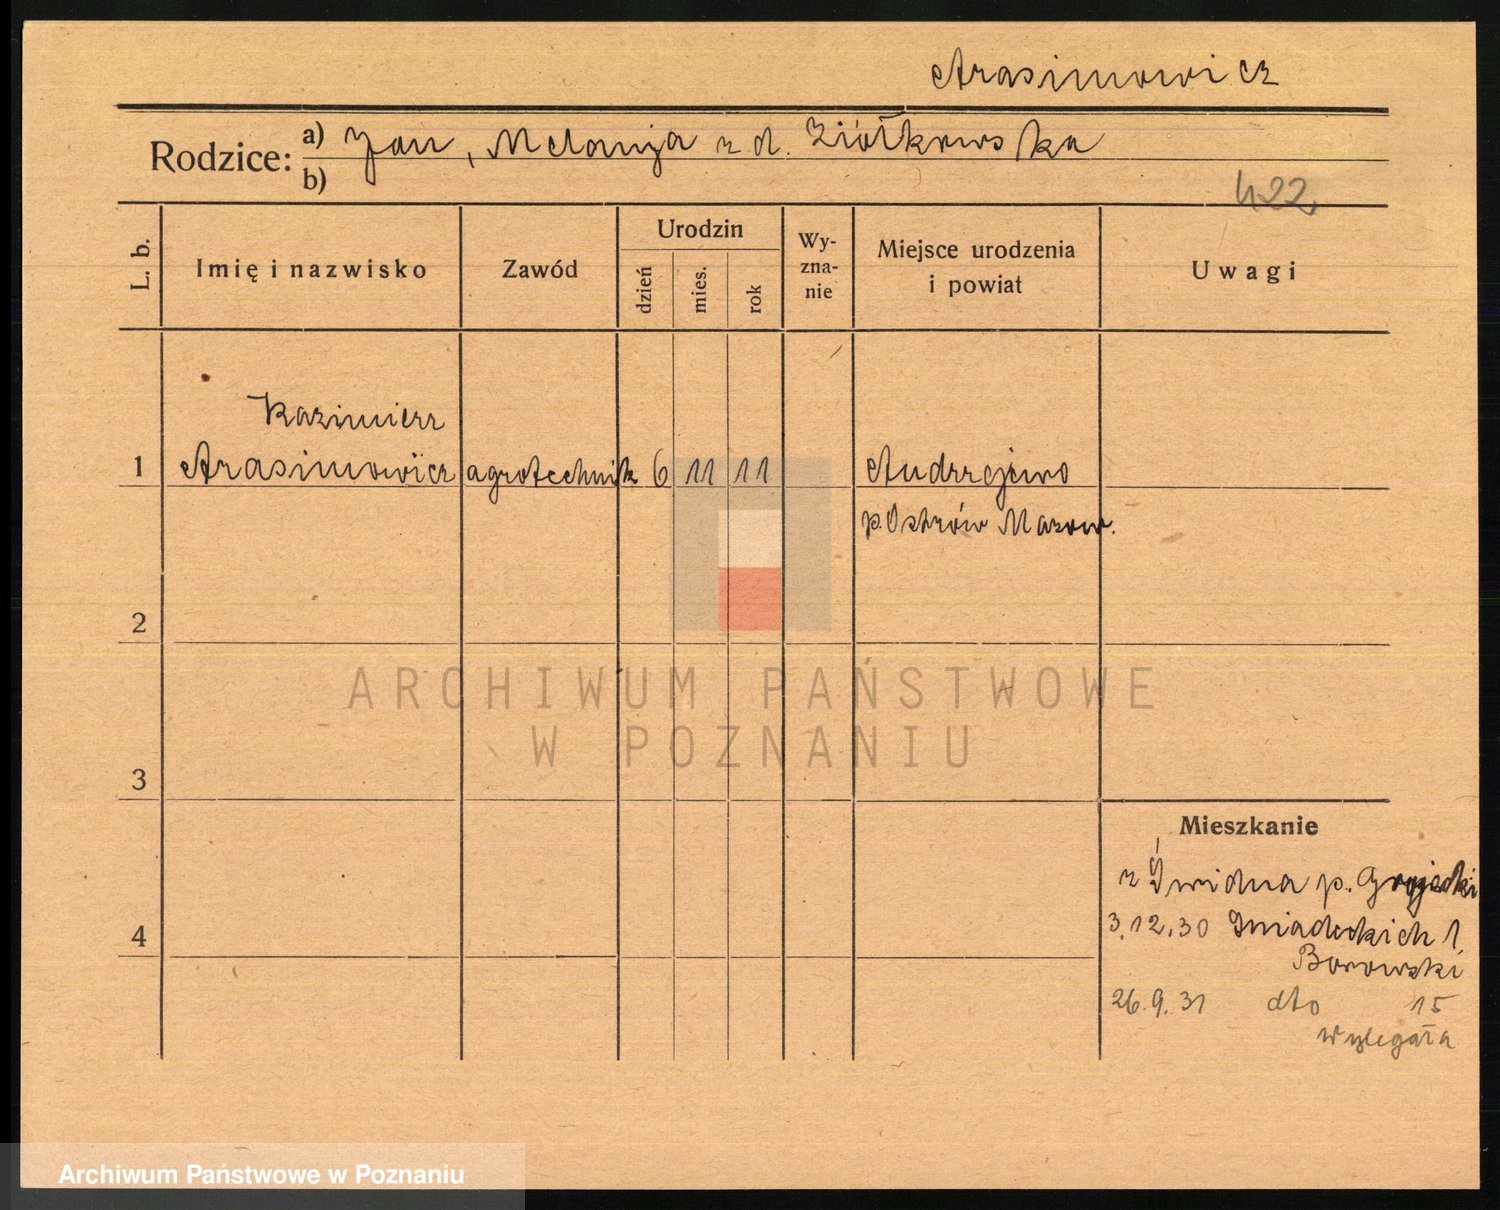 Arasimowicz
Rodzice: a) Jan, Melanja z d. Ziółkowska
b)
422
L. b.
Imię i nazwisko
Zawód
Urodzin
dzień
mies.
rok
Wy-
zna-
nie
Miejsce urodzenia
i powiat
Uwagi
Kazimierz
1 Arasimowicz agrotechnik 6 11 11 Andrzejewo
p. Ostrów Mazow.
2
ARCHIWUM PAŃSTWOWE
W POZNANIU
3
Mieszkanie
z Świdna p. Grójecki
3.12.30 Śniadeckich 1
4
Borowski
26.9.31 dto 15
Wylegała
Archiwum Państwowe w Poznaniu